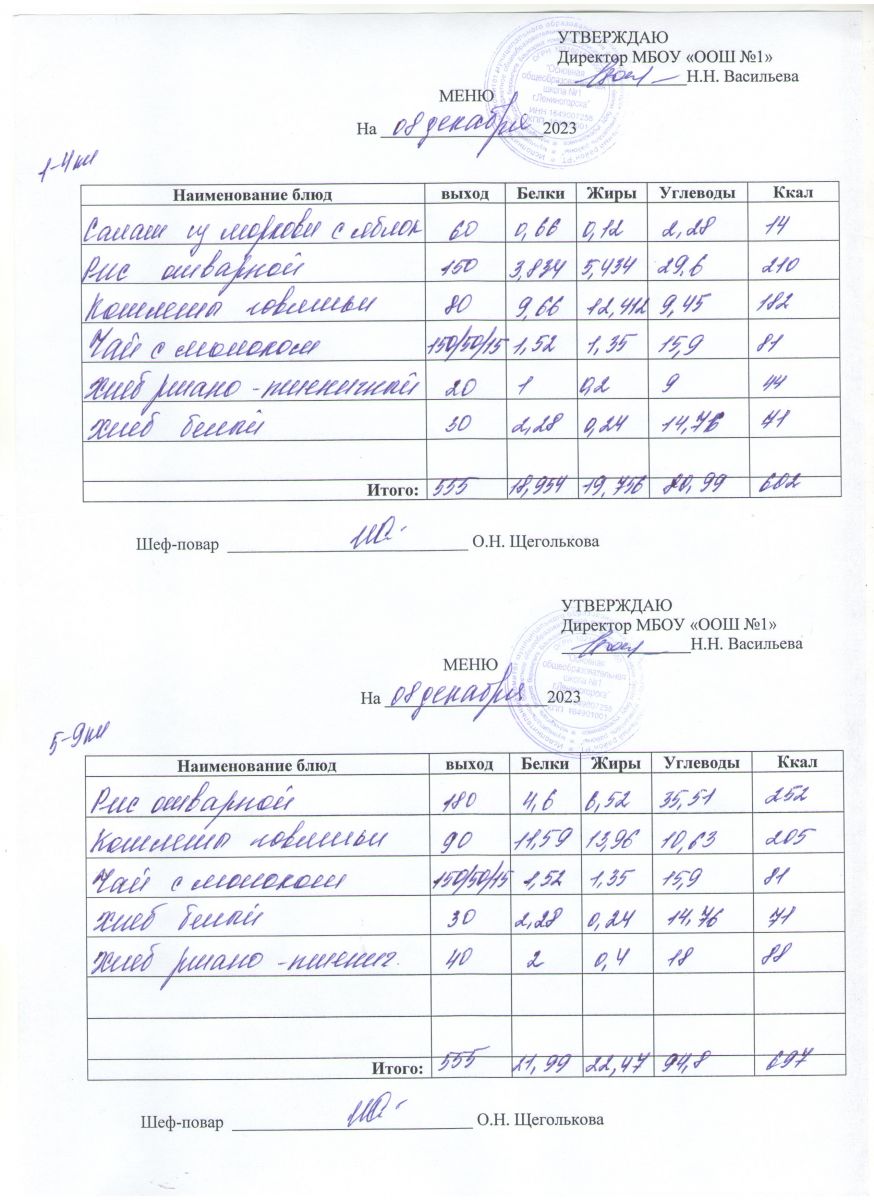 УТВЕРЖДАЮ
Директор МБОУ «ООШ №1»
Н.Н. Васильева
"Основная
общеобразовательная
школа №1
г.Лениногорска"
ИНН 1649007256
МЕНЮ
На 08 декабря 2023
1-4 кл
Наименование блюд выход Белки Жиры Углеводы Ккал
Салат из моркови с яблок 60 0,66 0,12 2,28 14
Рис отварной 150 3,834 5,434 29,6 210
Котлеты говяжьи 80 9,66 12,412 9,45 182
Чай с молоком 150/50/15 1,52 1,35 15,9 81
Хлеб ржано-пшеничный 20 1 0,2 9 44
Хлеб белый 30 2,28 0,24 14,76 71
Итого: 555 18,954 19,756 80,99 602
Шеф-повар О.Н. Щеголькова
УТВЕРЖДАЮ
Директор МБОУ «ООШ №1»
Н.Н. Васильева
"Основная
общеобразовательная
школа №1
г.Лениногорска"
МЕНЮ
На 08 декабря 2023
5-9 кл
Наименование блюд выход Белки Жиры Углеводы Ккал
Рис отварной 180 4,6 6,52 35,51 252
Котлеты говяжьи 90 11,59 13,96 10,63 205
Чай с молоком 150/50/15 1,52 1,35 15,9 81
Хлеб белый 30 2,28 0,24 14,76 71
Хлеб ржано-пшенич. 40 2 0,4 18 88
Итого: 555 21,99 22,47 94,8 697
Шеф-повар О.Н. Щеголькова